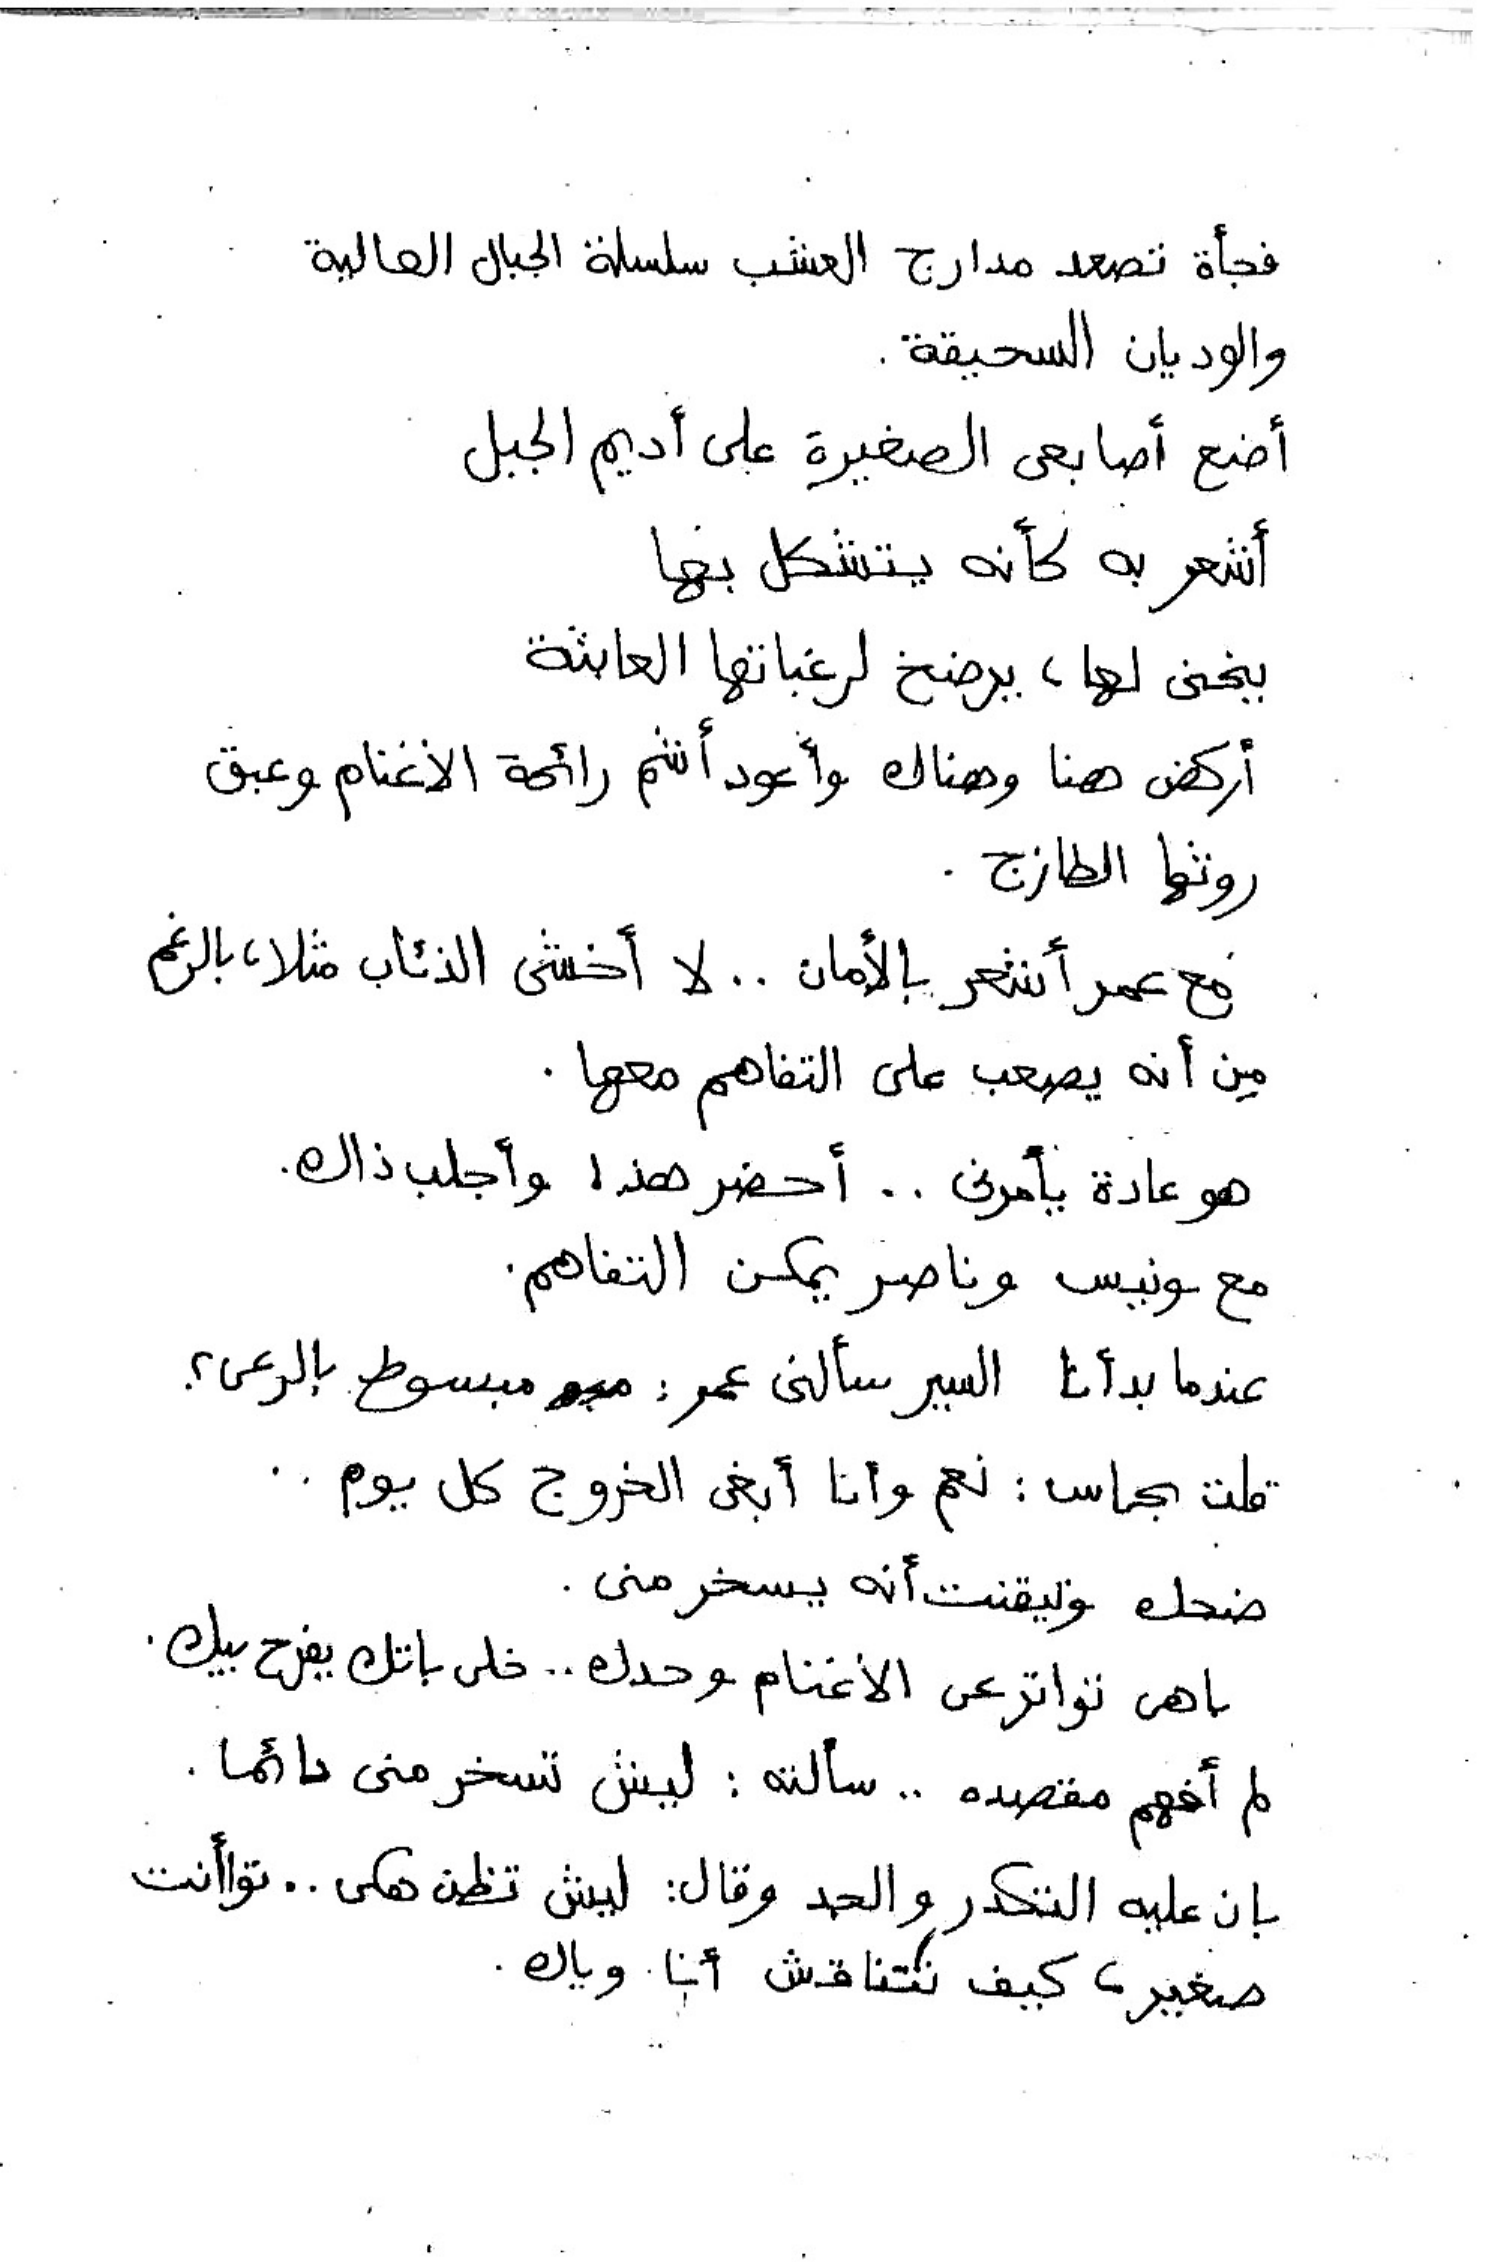 فجأة تصعد مدارج العشب سلسلة الجبال العالية
والوديان السحيقة .
أضع أصابعى الصغيرة على أديم الجبل
أشعر به كأنه يتشكل بها
ينحنى لها ، يرضخ لرغباتها العابثة
أركض هنا وهناك وأعود أشم رائحة الأغنام وعبق
روثها الطازج .
مع عمر أشعر بالأمان .. لا أخشى الذئاب مثلا ، بالرغم
من أنه يصعب على التفاهم معها .
هو عادة يأمرنى .. أحضر هذا وأجلب ذاك .
مع ونيس وناصر يمكن التفاهم .
عندما بدأنا السير سألنى عمر : مبسوط بالرعى ؟
قلت بحماس : نعم وأنا أبغى الخروج كل يوم ..
ضحك وتيقنت أنه يسخر منى .
باهى توا ترعى الأغنام وحدك .. خلى باتك يفرح بيك .
لم أفهم مقصده .. سألته : ليش تسخر منى دائما .
بان عليه التكدر والجد وقال : ليش تظن هكى .. توا أنت
صغير ، كيف نتناقش أنا وياك .